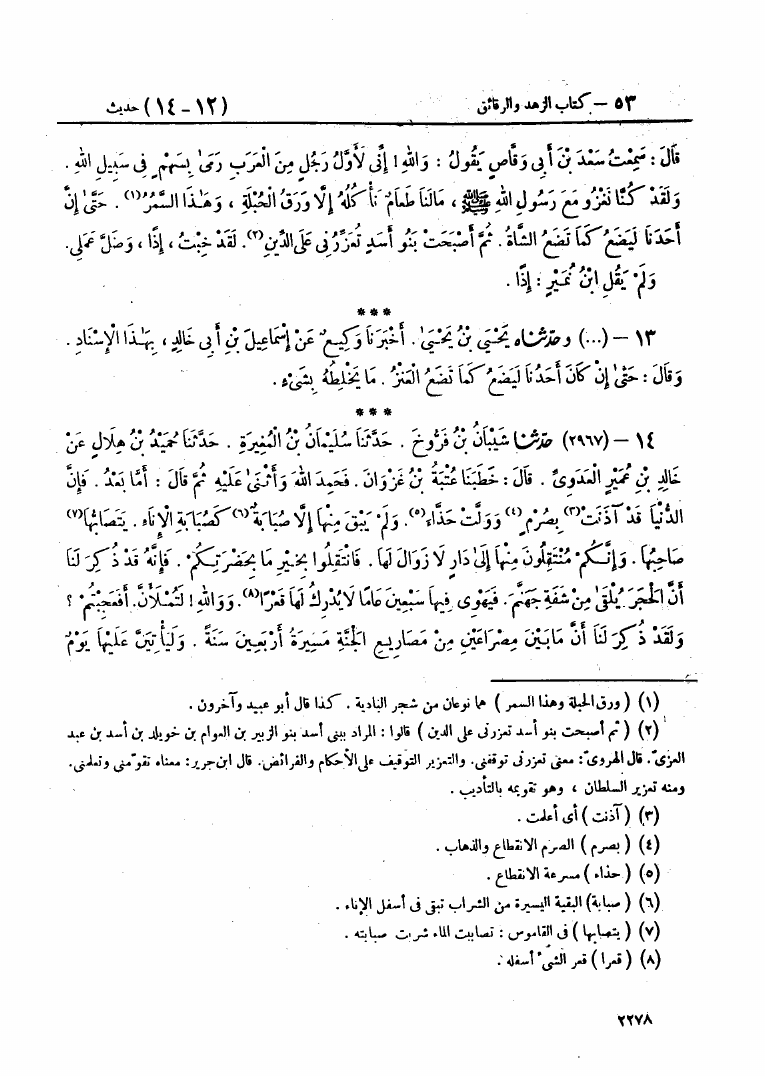 ٥٣ – كتاب الزهد والرقائق (١٢ – ١٤) حديث
قَالَ : سَمِعْتُ سَعْدَ بْنَ أَبِي وَقَّاصٍ يَقُولُ : وَاللهِ ! إِنِّي لَأَوَّلُ رَجُلٍ مِنَ الْعَرَبِ رَمَىٰ بِسَهْمٍ فِي سَبِيلِ اللهِ .
وَلَقَدْ كُنَّا نَغْزُو مَعَ رَسُولِ اللهِ ﷺ ، مَالَنَا طَعَامٌ نَأْكُلُهُ إِلَّا وَرَقُ الْحُبْلَةِ ، وَهَٰذَا السَّمُرُ(١) . حَتَّىٰ إِنَّ
أَحَدَنَا لَيَضَعُ كَمَا تَضَعُ الشَّاةُ . ثُمَّ أَصْبَحَتْ بَنُو أَسَدٍ تُعَزِّرُنِي عَلَى الدِّينِ(٢). لَقَدْ خِبْتُ ، إِذًا ، وَضَلَّ عَمَلِي.
وَلَمْ يَقُلِ ابْنُ نُمَيْرٍ : إِذًا .
***
١٣ – (...) وحَدَّثَنَاه يَحْيَىٰ بْنُ يَحْيَىٰ . أَخْبَرَنَا وَكِيعٌ عَنْ إِسْمَاعِيلَ بْنِ أَبِي خَالِدٍ ، بِهَٰذَا الْإِسْنَادِ .
وَقَالَ : حَتَّىٰ إِنْ كَانَ أَحَدُنَا لَيَضَعُ كَمَا تَضَعُ الْعَنْزُ . مَا يَخْلِطُهُ بِشَيْءٍ .
***
١٤ – (٢٩٦٧) حَدَّثَنَا شَيْبَانُ بْنُ فَرُّوخَ . حَدَّثَنَا سُلَيْمَانُ بْنُ الْمُغِيرَةِ . حَدَّثَنَا حُمَيْدُ بْنُ هِلَالٍ عَنْ
خَالِدِ بْنِ عُمَيْرٍ الْعَدَوِيِّ . قَالَ : خَطَبَنَا عُتْبَةُ بْنُ غَزْوَانَ . فَحَمِدَ اللهَ وَأَثْنَىٰ عَلَيْهِ ثُمَّ قَالَ : أَمَّا بَعْدُ . فَإِنَّ
الدُّنْيَا قَدْ آذَنَتْ(٣) بِصُرْمٍ(٤) وَوَلَّتْ حَذَّاءَ(٥). وَلَمْ يَبْقَ مِنْهَا إِلَّا صُبَابَةٌ(٦) كَصُبَابَةِ الْإِنَاءِ . يَتَصَابُّهَا(٧)
صَاحِبُهَا . وَإِنَّكُمْ مُنْتَقِلُونَ مِنْهَا إِلَىٰ دَارٍ لَا زَوَالَ لَهَا . فَانْتَقِلُوا بِخَيْرِ مَا بِحَضْرَتِكُمْ . فَإِنَّهُ قَدْ ذُكِرَ لَنَا
أَنَّ الْحَجَرَ يُلْقَىٰ مِنْ شَفَةِ جَهَنَّمَ . فَيَهْوِي فِيهَا سَبْعِينَ عَامًا لَا يُدْرِكُ لَهَا قَعْرًا(٨). وَوَاللهِ ! لَتُمْلَأَنَّ . أَفَعَجِبْتُمْ ؟
وَلَقَدْ ذُكِرَ لَنَا أَنَّ مَا بَيْنَ مِصْرَاعَيْنِ مِنْ مَصَارِيعِ الْجَنَّةِ مَسِيرَةُ أَرْبَعِينَ سَنَةً . وَلَيَأْتِيَنَّ عَلَيْهَا يَوْمٌ
(١) ( ورق الحبلة وهذا السمر ) هما نوعان من شجر البادية . كذا قال أبو عبيد وآخرون .
(٢) ( ثم أصبحت بنو أسد تعزرنى على الدين ) قالوا : المراد ببنى أسد بنو الزبير بن العوام بن خويلد بن أسد بن عبد
العزىّ . قال الهروىّ : معنى تعزرنى توقفنى . والتعزير التوقيف على الأحكام والفرائض. قال ابن جرير: معناه تقوّمنى وتعلمنى.
ومنه تعزير السلطان ، وهو تقويمه بالتأديب .
(٣) ( آذنت ) أى أعلمت .
(٤) ( بصرم ) الصرم الانقطاع والذهاب .
(٥) ( حذاء ) مسرعة الانقطاع .
(٦) ( صبابة ) البقية اليسيرة من الشراب تبقى فى أسفل الإناء .
(٧) ( يتصابها ) فى القاموس : تصاببت الماء شربت صبابته .
(٨) ( قعرا ) قعر الشىء أسفله .
٢٢٧٨